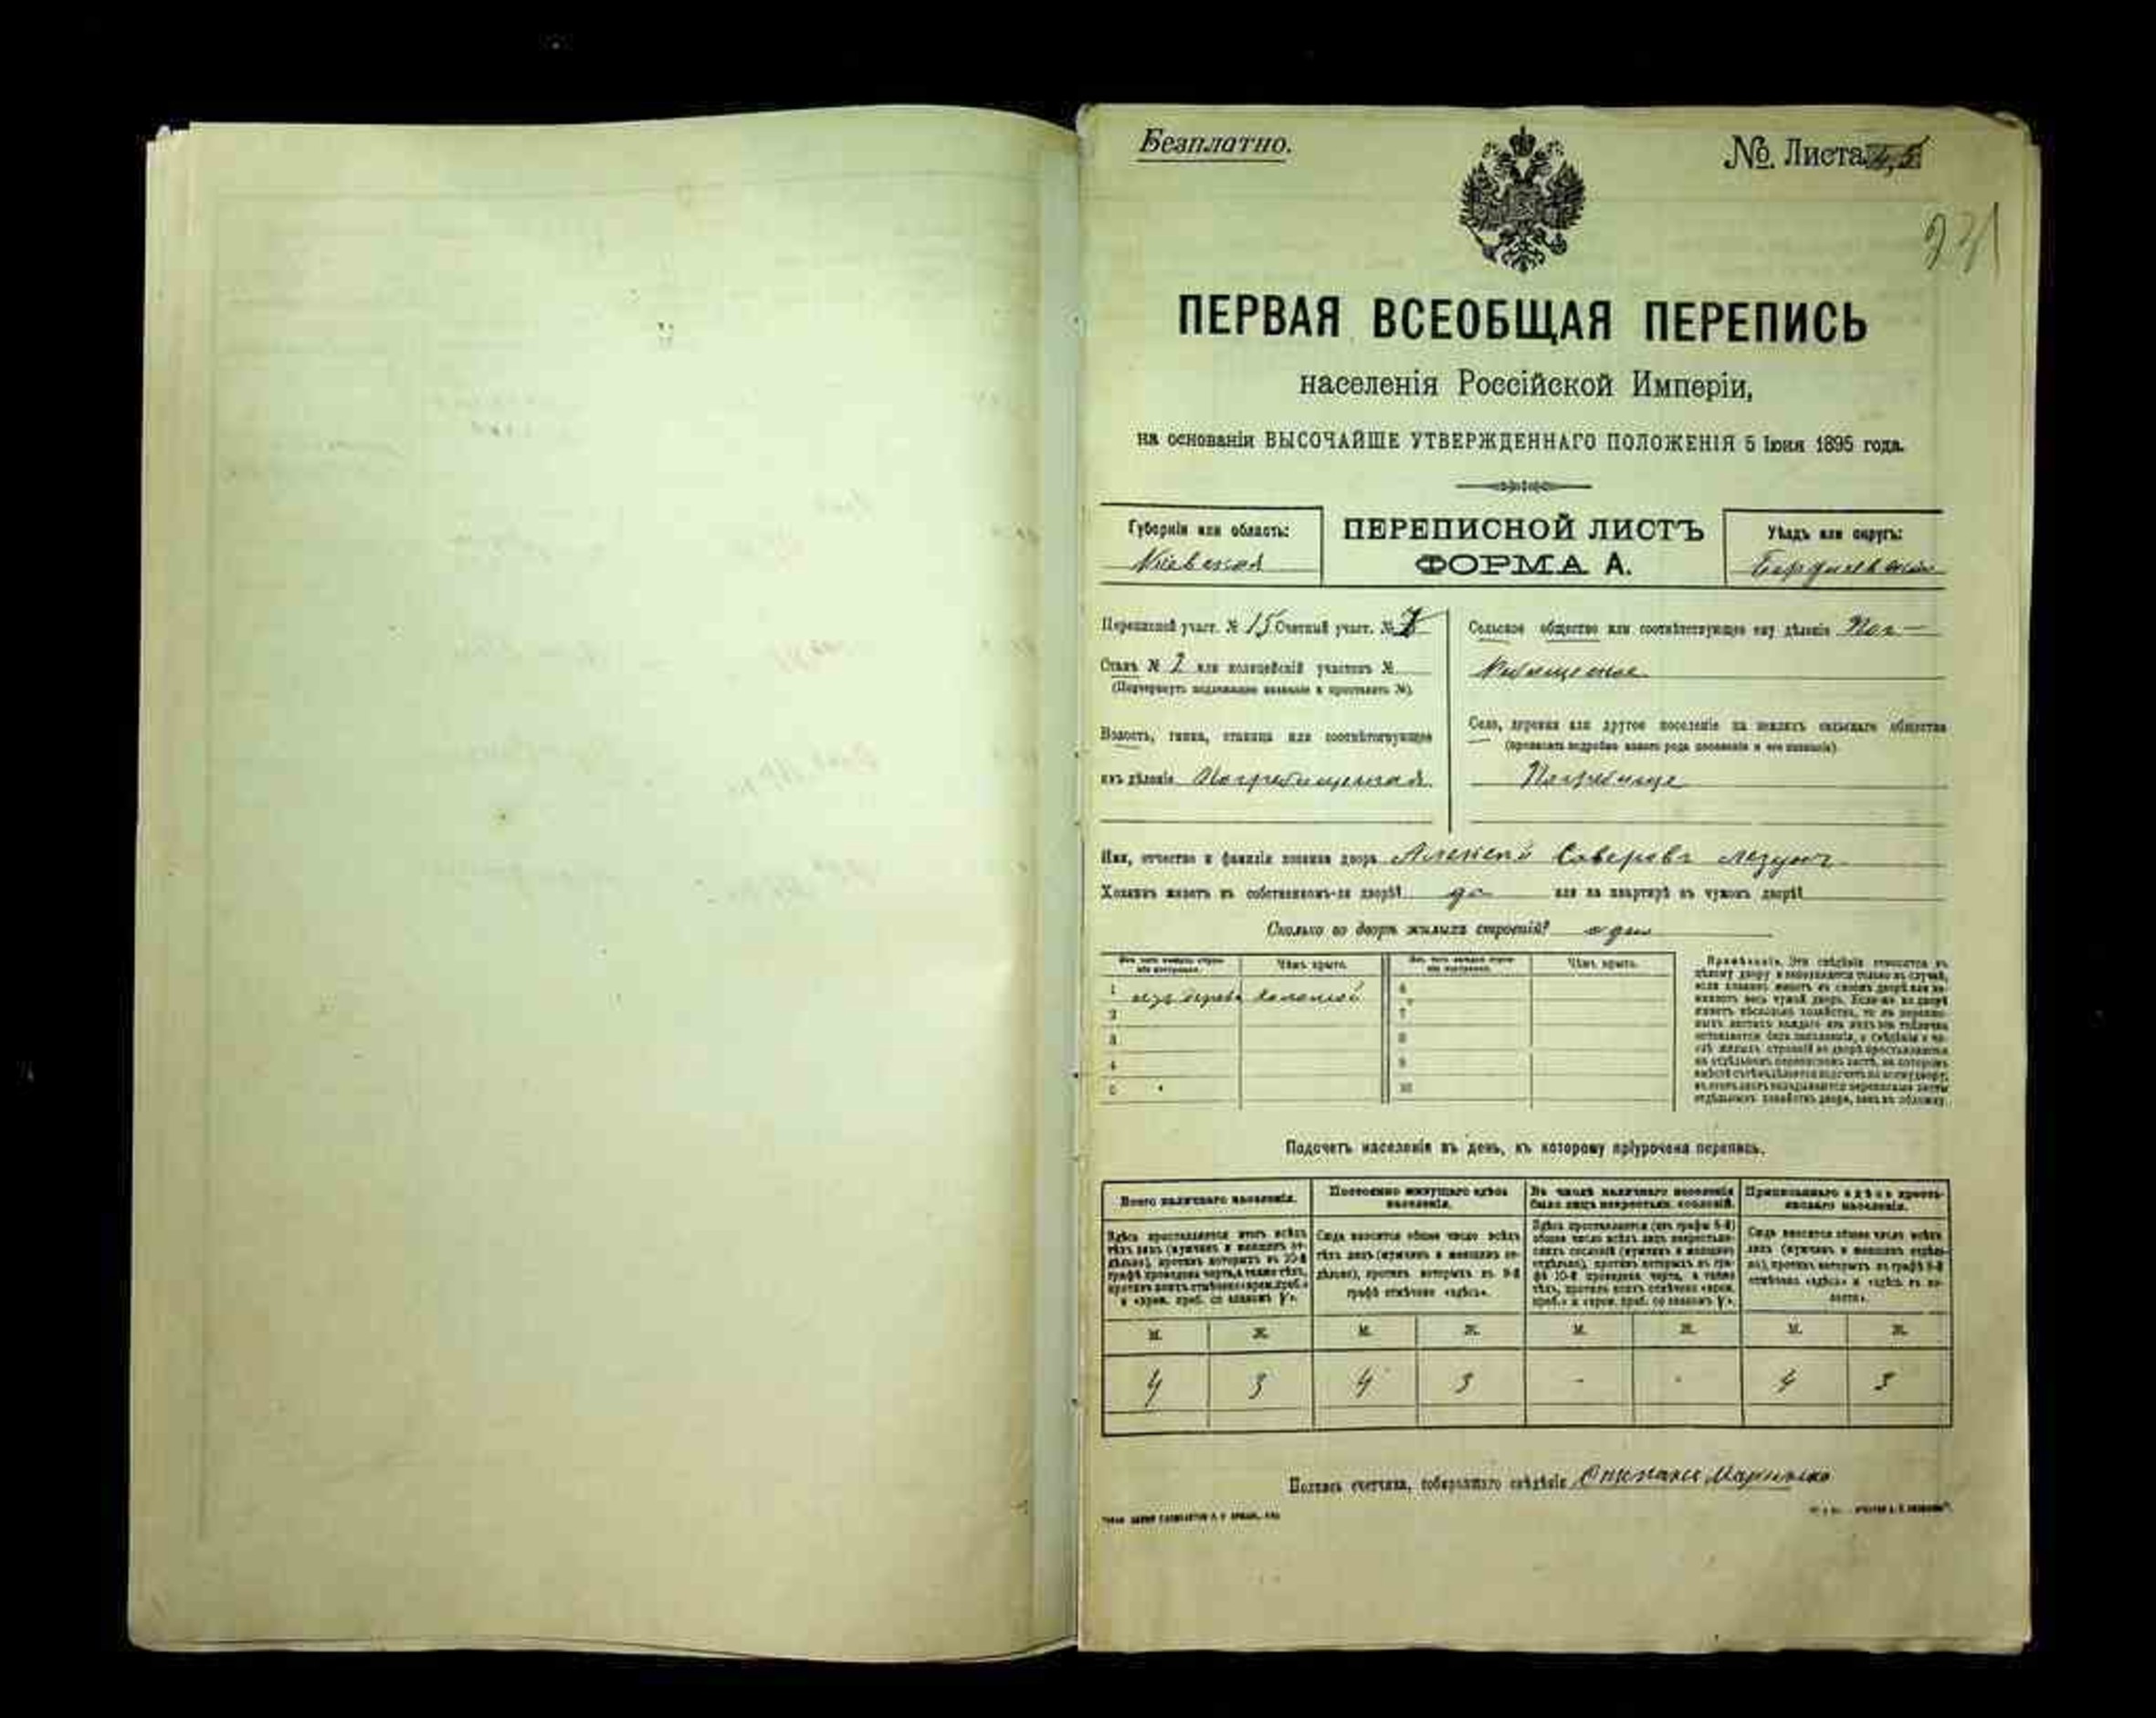 Безплатно.
№. Листа 4,5
231
ПЕРВАЯ ВСЕОБЩАЯ ПЕРЕПИСЬ
населенія Россійской Имперіи,
на основаніи ВЫСОЧАЙШЕ УТВЕРЖДЕННАГО ПОЛОЖЕНІЯ 5 Іюня 1895 года.
Губернія или область:
Кіевская
ПЕРЕПИСНОЙ ЛИСТЪ
ФОРМА А.
Уѣздъ или округъ:
Бердичевскій
Переписной участ. № 15 Счетный участ. №
Станъ № 2 или полицейскій участокъ №
(Подчеркнуть надлежащее названіе и проставить №).
Волость, гмина, станица или соотвѣтствующее
имъ дѣленіе Погребищенская
Сельское общество или соотвѣтствующее ему дѣленіе Пог-
ребищенское
Село, деревня или другое поселеніе на земляхъ сельскаго общества
(прописать подробно какого рода поселеніе и его названіе)
Погребище
Имя, отчество и фамилія хозяина двора Алексѣй Саверовъ Лезунъ
Хозяинъ живетъ въ собственномъ-ли дворѣ? да или на квартирѣ въ чужомъ дворѣ?
Сколько во дворѣ жилыхъ строеній? один
Изъ чего каждое строеніе построено. Чѣмъ крыто. Изъ чего каждое строеніе построено. Чѣмъ крыто.
1 изъ дерева соломой 6
2 7
3 8
4 9
5 10
Примѣчаніе. Эти свѣдѣнія относятся къ
цѣлому двору и заполняются только въ случаѣ,
если хозяинъ живетъ въ своемъ дворѣ или за-
нимаетъ весь чужой дворъ. Если-же во дворѣ
живетъ нѣсколько хозяйствъ, то въ перепис-
ныхъ листахъ каждаго изъ нихъ эта табличка
оставляется безъ заполненія, а свѣдѣнія о чи-
слѣ жилыхъ строеній во дворѣ проставляются
на отдѣльномъ переписномъ листѣ, на которомъ
вмѣстѣ съ тѣмъ дѣлается подсчетъ по всему двору;
въ этотъ листъ вкладываются переписные листы
отдѣльныхъ хозяйствъ двора, какъ въ обложку.
Подсчетъ населенія въ день, къ которому пріурочена перепись.
Всего наличнаго населенія.
Здѣсь проставляется итогъ всѣхъ
тѣхъ лицъ (мужчинъ и женщинъ от-
дѣльно), противъ которыхъ въ 10-й
графѣ проведена черта, а также тѣхъ,
противъ коихъ отмѣчено «врем. преб.»
и «врем. преб. со знакомъ V».
Постоянно живущаго здѣсь
населенія.
Сюда вносится общее число всѣхъ
тѣхъ лицъ (мужчинъ и женщинъ от-
дѣльно), противъ которыхъ въ 9-й
графѣ отмѣчено «здѣсь».
Въ числѣ наличнаго населенія
было лицъ некрестьян. сословій.
Здѣсь проставляется (изъ графы 5-й)
общее число всѣхъ лицъ некрестьян-
скихъ сословій (мужчинъ и женщинъ
отдѣльно), противъ которыхъ въ гра-
фѣ 10-й проведена черта, а также
тѣхъ, противъ коихъ отмѣчено «врем.
преб.» и «врем. преб. со знакомъ V».
Приписаннаго здѣсь кресть-
янскаго населенія.
Сюда вносится общее число всѣхъ
лицъ (мужчинъ и женщинъ отдѣль-
но), противъ которыхъ въ графѣ 8-й
отмѣчено «здѣсь» и «здѣсь въ во-
лости».
М. Ж. М. Ж. М. Ж. М. Ж.
4 3 4 3 - - 4 3
Подпись счетчика, собиравшаго свѣдѣнія